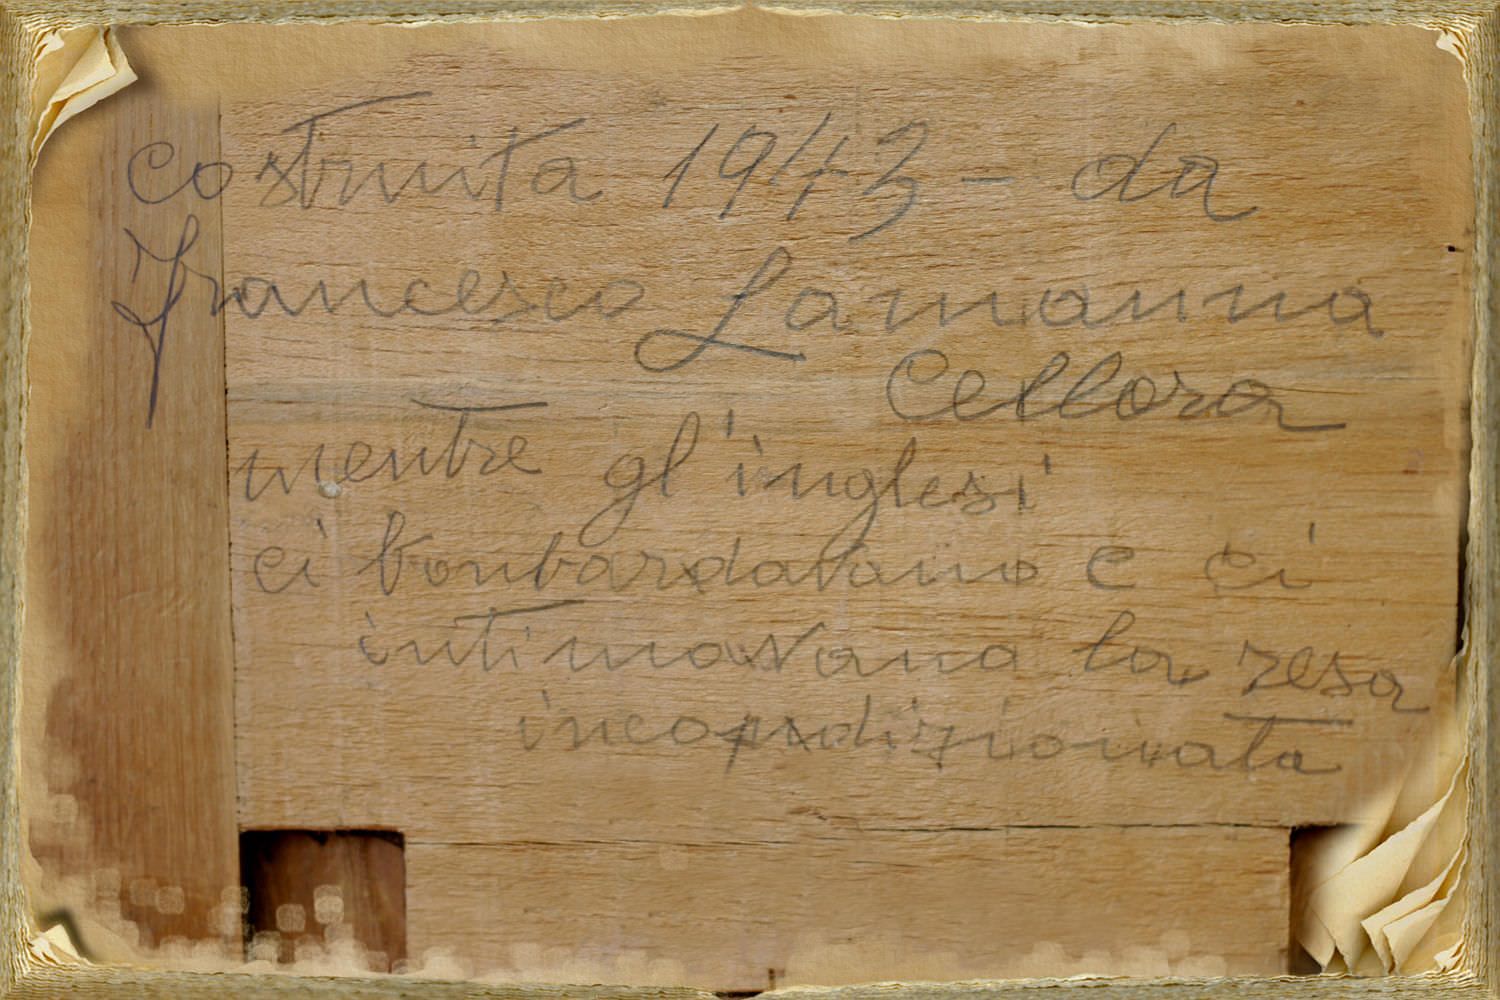 costruita 1943 - da
Francesco Lamanna
Cellara
mentre gl'inglesi
ci bombardavano e ci
intimavano la resa
incondizionata